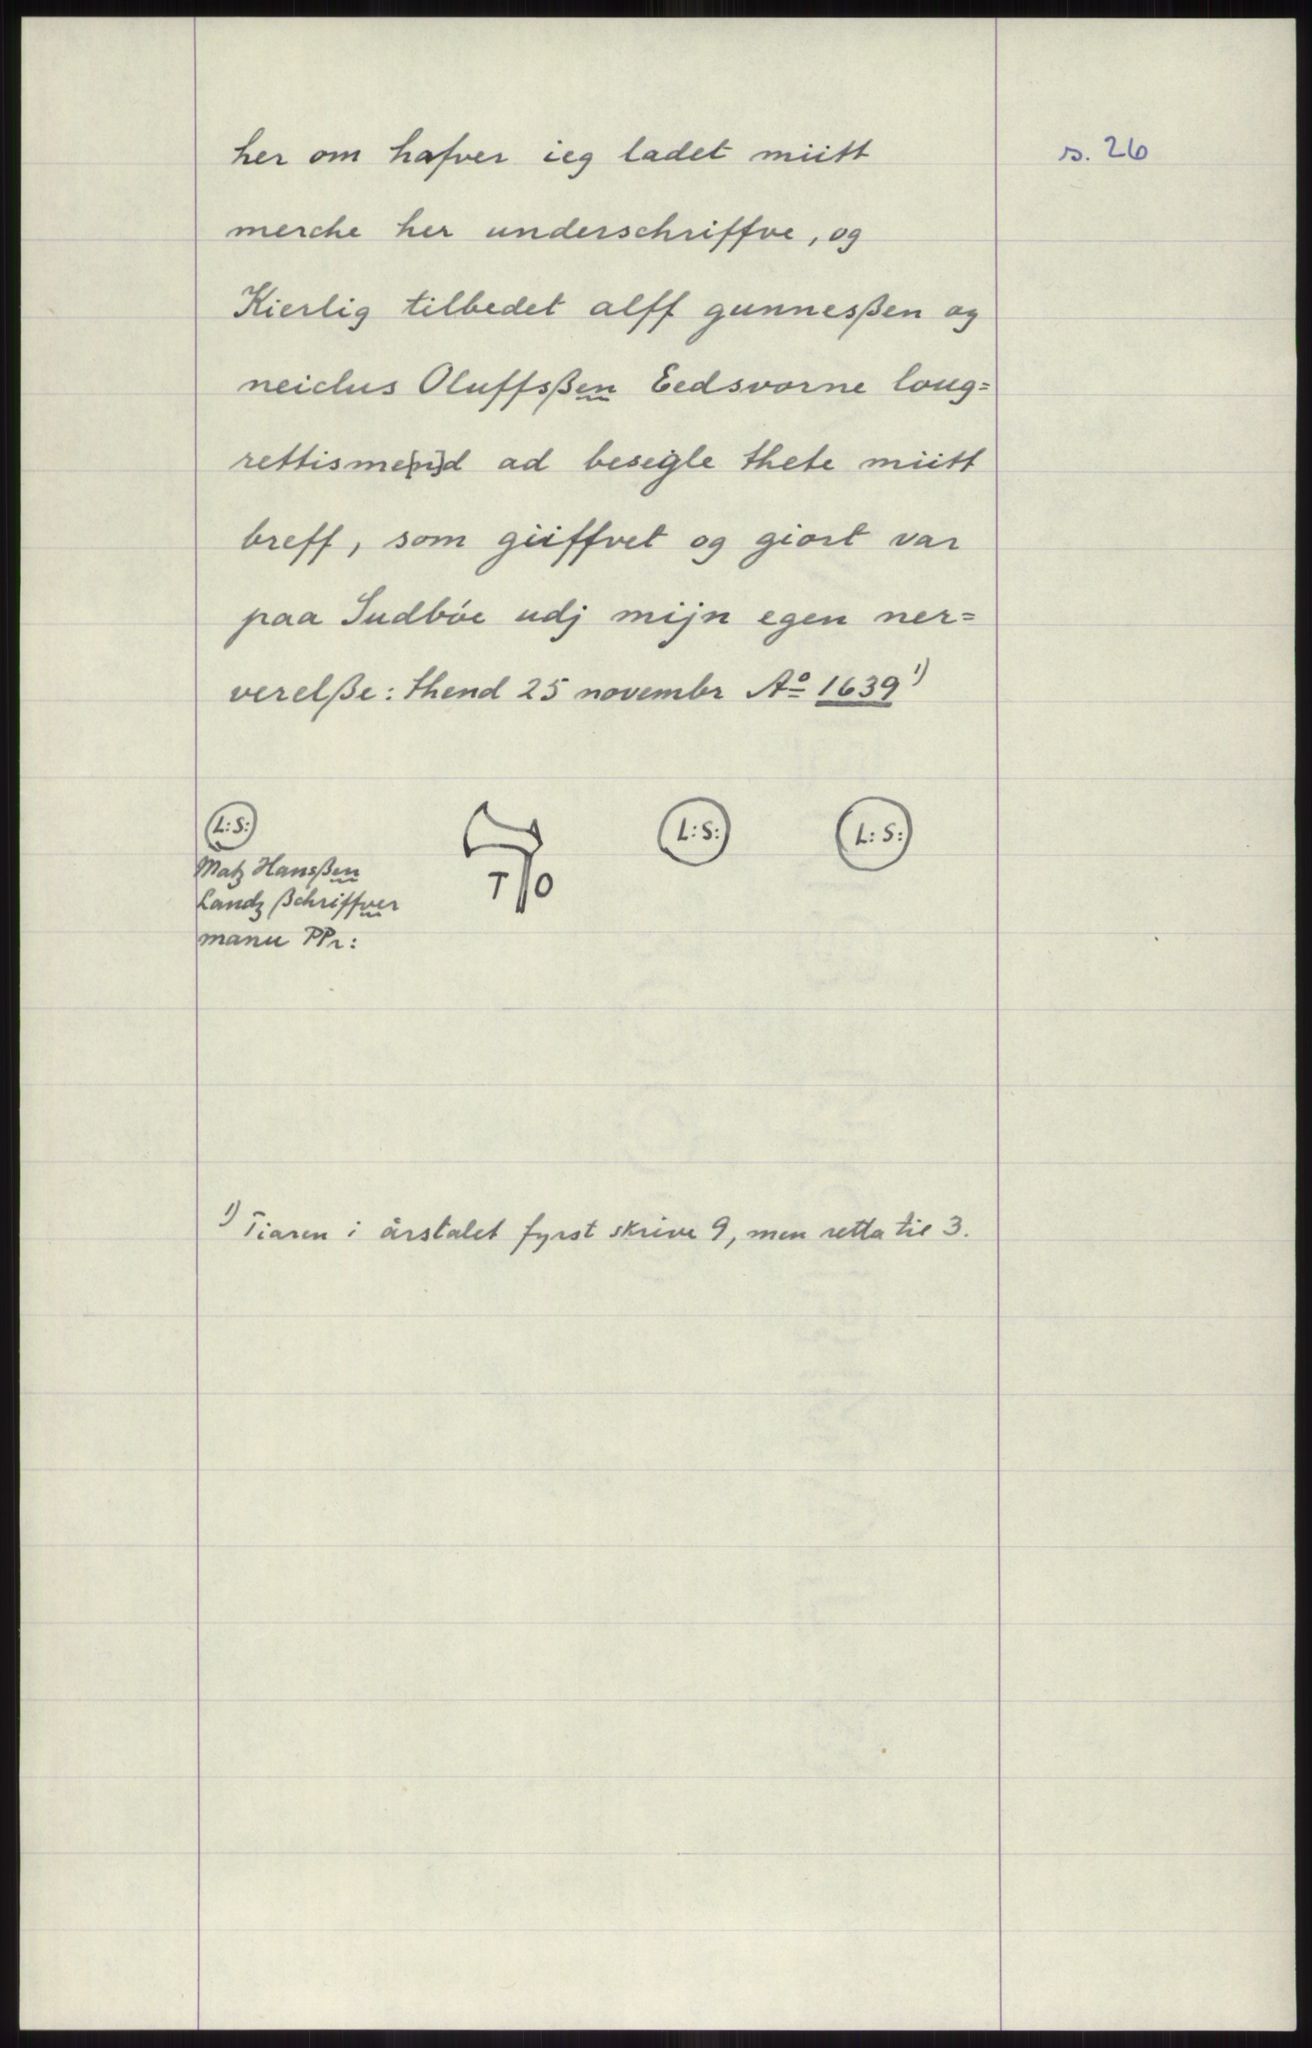 her om hafver ieg ladet miitt
s. 26
merche her underschriffve, og
Kierlig tilbedet alff gunnesßen og
neiclus Oluffsßen Eedsvorne loug=
rettisme[n]d ad besegle thete miitt
breff, som giiffvet og giort var
paa Sudbóe udj mijn egen ner=
verelße: thend 25 novembr Aº 1639 ¹)
L:S:
L:S:
L:S:
Matz Hansßen
Landz ßchriffver
manu PPr:
T O
¹) Tiaren i årstalet fyrst skrive 9, men retta til 3.